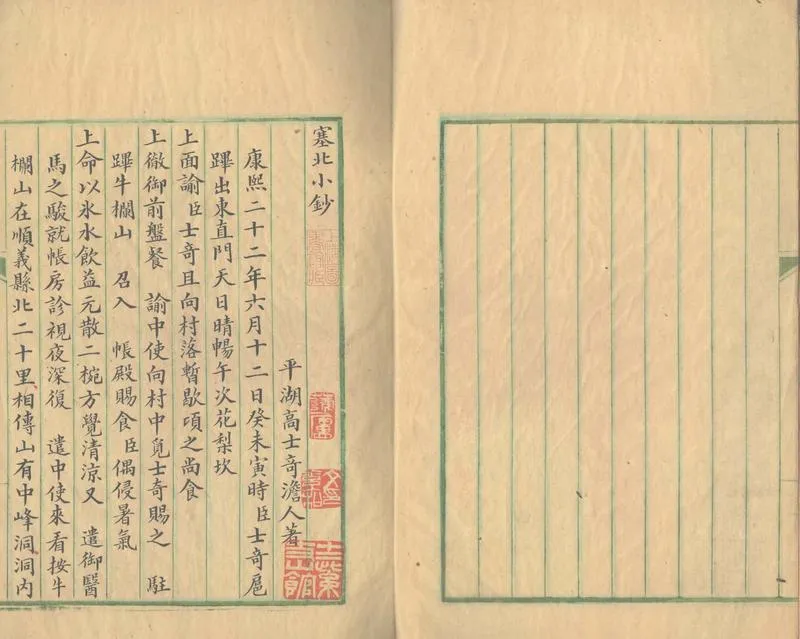 塞北小鈔
平湖高士奇澹人著
康熙二十二年六月十二日癸未寅時臣士奇扈
蹕出東直門天日晴暢午次花梨坎
上面諭臣士奇且向村落暫歇頃之尚食
上徹御前盤餐 諭中使向村中覓士奇賜之 駐
蹕牛欄山 召入 帳殿賜食臣偶侵暑氣
上命以氷水飲益元散二椀方覺清涼又 遣御醫
馬之駿就帳房診視夜深復 遣中使來看按牛
欄山在順義縣北二十里相傳山有中峰洞洞內